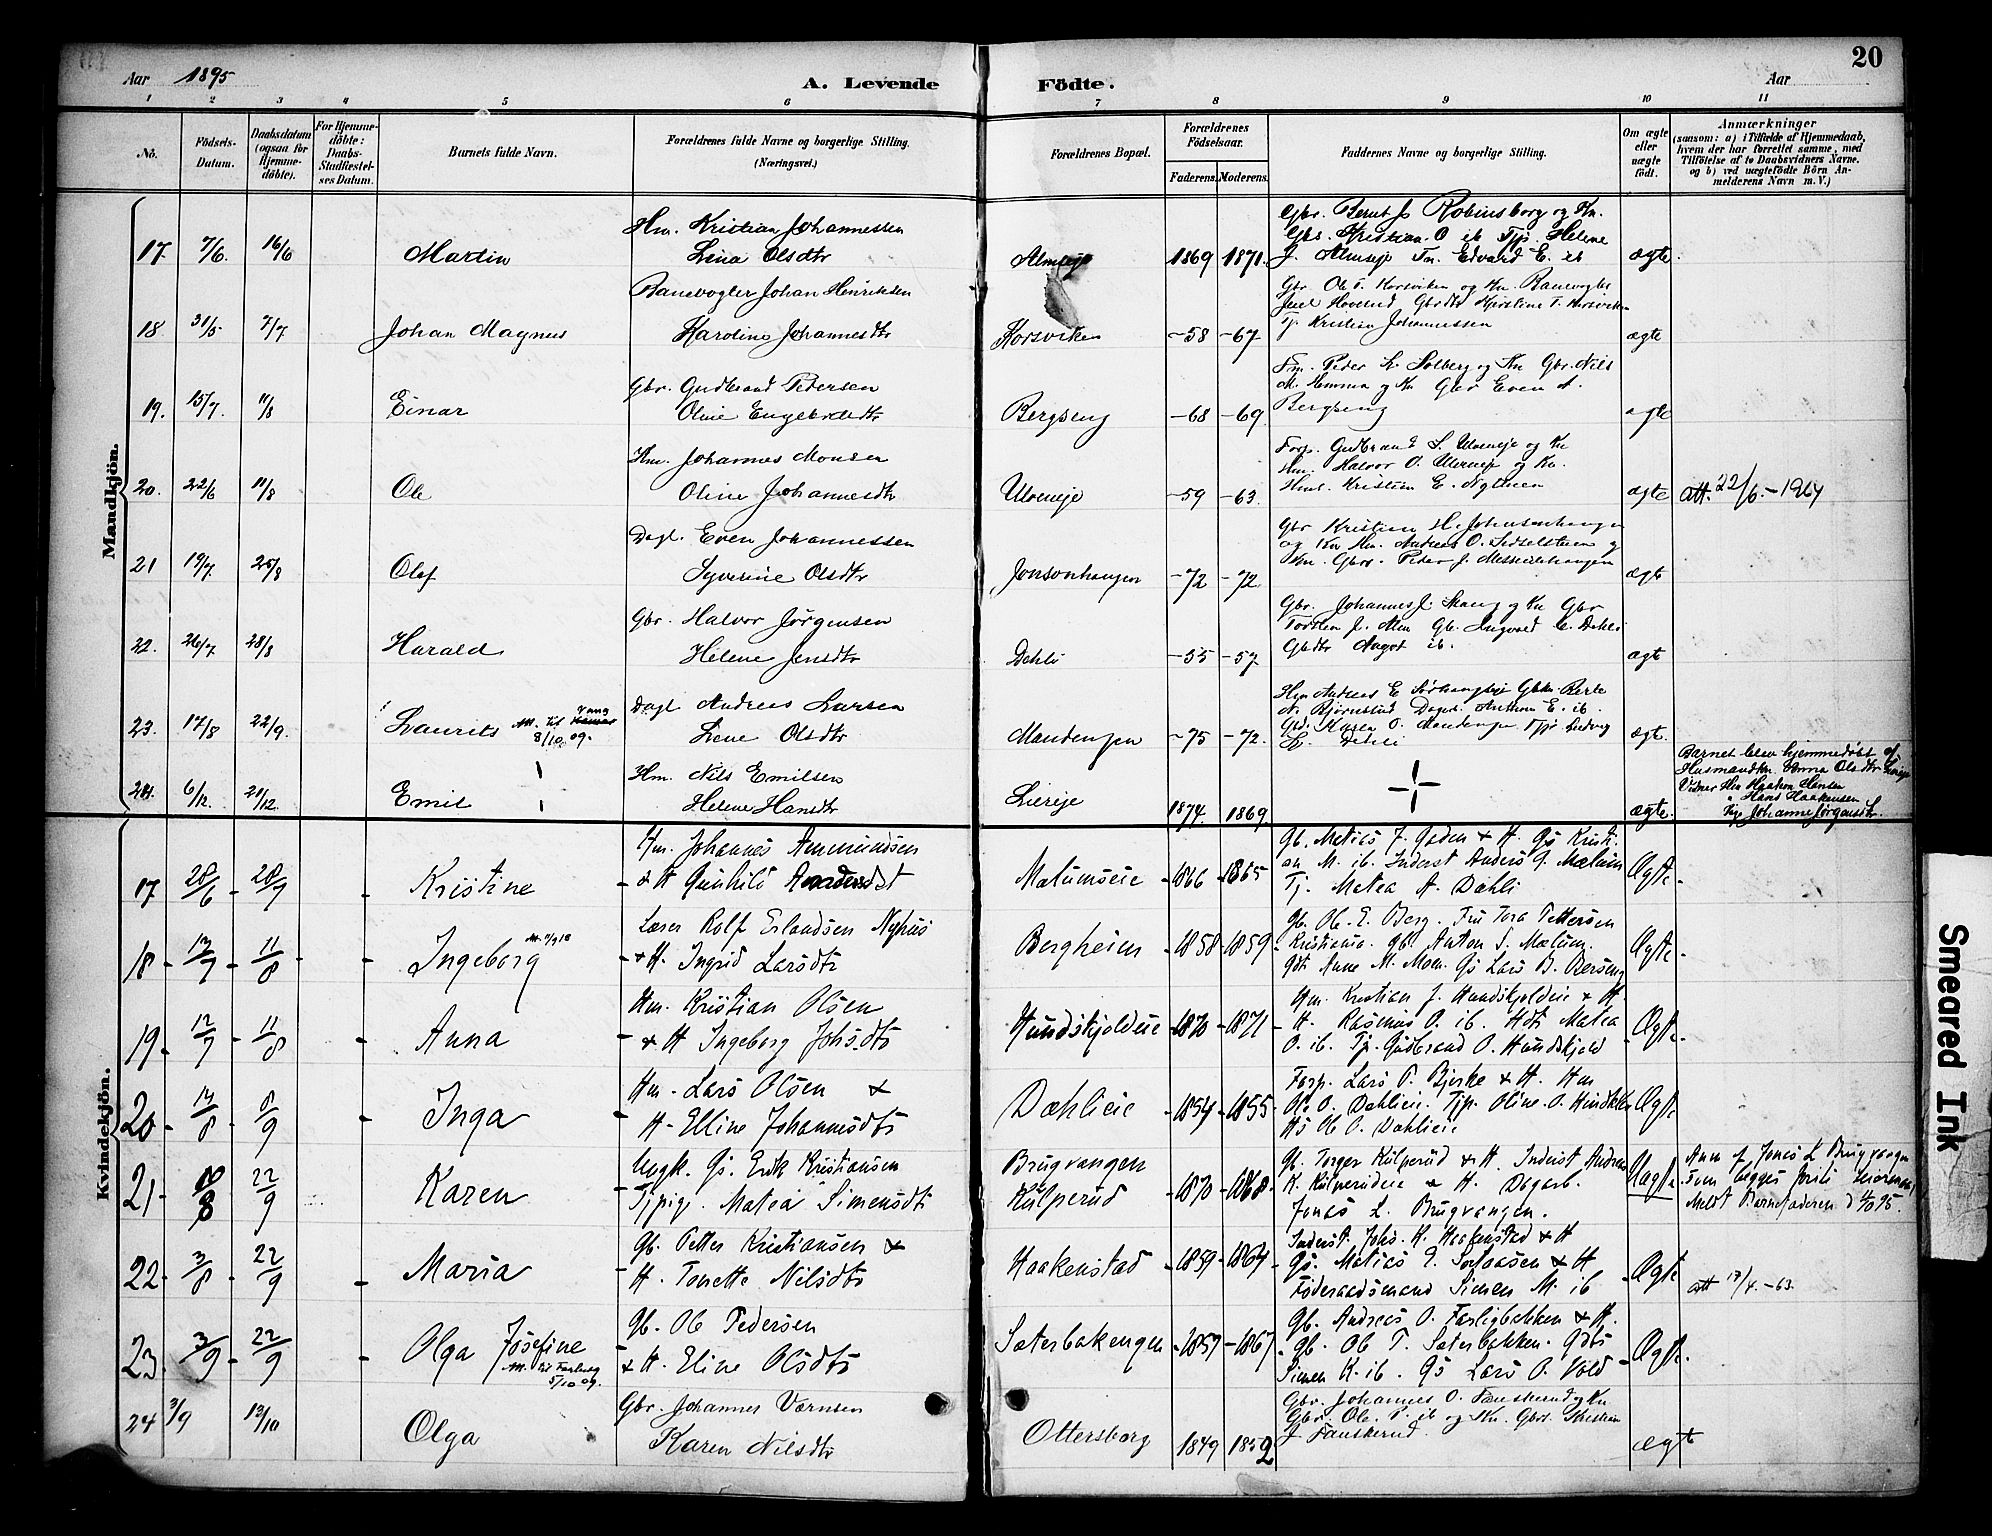 Aar 1895
A. Levende Fødte.
Aar
20
1 2 3 4 5 6 7 8 9 10 11
No.
Fødsels-Datum.
Daabsdatum (ogsaa for Hjemme-døbte).
For Hjemme-døbte: Daabs-Stadfæstel-ses Datum.
Barnets fulde Navn.
Forældrenes fulde Navne og borgerlige Stilling. (Næringsvei.)
Forældrenes Bopæl.
Forældrenes Fødselsaar.
Faderens. Moderens.
Faddernes Navne og borgerlige Stilling.
Om ægte eller uægte født.
Anmærkninger
(saasom: a) i Tilfælde af Hjemmedaab, hvem der har forrettet samme, med Tilføielse af to Daabsvidners Navne, og b) ved uægtefødte Børn An-melderens Navn m. V.)
Mandkjøn.
17. 7/6. 16/6 Martin
Hm. Kristian Johannessen
Lina Olsdtr
Almseje 1869 1871.
Gbr. Bernt J. Robinsborg og Kn.
Gbs. Kristian O ib Tjp. Helene
J. Almseje Tm. Edvard E. ib
ægte.
18 31/5 7/7 Johan Magnus
Banevogter Johan Henriksen
Karoline Johannesdtr
Korsviken -58 -67
Gbr. Ole T. Korsviken og Kn. Banevogter
Hovelsrud Gbrdtr Kjerstine T. Korsviken
Tj. Kristian Johannessen
ægte
19. 15/7. 11/8 Einar
Gbr. Gudbrand Pedersen
Oline Engebrdtr
Bergseng -68 -69
Fm. Peder L. Solberg og Kn Gbr. Nils
M. Hemma og Kn Gbr Even A.
Bergseng
ægte
20. 22/6 11/8 Ole
Hm. Johannes Monsen
Oline Johannesdtr
Ulveneje -59 -63.
Forp. Gudbrand S. Ulveneje og Kn
Hm. Halvor O. Ulveneje og Kn.
Kristian E.
ægte att. 22/6.-1964
21 19/7. 25/8 Olaf
Dagl. Even Johannessen
Syverine Olsdtr
Jonsonhaugen -72 -72
Gbr Kristian H. Johnsenhaugen
og Kn Hm. Andreas O.
Kn. Gbrs. Peder J.
ægte
22. 26/7 28/8 Harald
Gbr. Halvor Jørgensen
Helene Jensdtr
Dehli -55 -57.
Gbr. Johannes J. Skang og Kn Gbr
Torsten J. Alm Gb. Ingvald E. Dehli
Gbdtr Aagot ib.
ægte
23. 17/8 22/9. Laurits Att. til Vang 8/10 09.
Dagl Andreas Larsen
Lene Olsdtr
Mandengen -75 -72.
Hm Andreas E.
N. Bjørnstad Dagl. Anthon E. ib.
Karen O. Mandengen Tjp. Ludvig
L. Dehli
ægte.
24. 6/12. 21/12. Emil
Hm. Nils Emilsen
Helene Hansdtr
Liereje 1874. 1869.
ægte.
Barnet blev hjemmedøbt af
Husmandkn. Anna Olsdtr Liereje
Vidner Hm Haakon Hansen
" Hans Haakensen
Johanne Jørgensdtr.
Kvindekjøn.
17 28/6 - 28/7 - Kristine
Hm. Johannes Ammundsen
- & H Gunhild Andersdt
Mælumseie - 1866 - 1865
Gb. Matias J. Gaden & H. Gs Kristi-
an M. ib. Inderst Anders G. Mælum
Tj. Matea A. Dahli
Ægte -
18 - 13/7 - 11/8 - Ingeborg
Lærer Rolf Erlandsen Nyhus
- & H. Ingrid Larsdtr
Bergheim - 1858 - 1859 -
Gb. Ole E. Berg. Fru Tora Pettersen
Kristiania. Gb. Anton S. Mælum.
Gdt Anne M. Moen. Gs Lars B. Berseng
Ægte -
19 - 12/7 - 11/8 - Anna
Hm. Kristian Olsen
- & H Ingeborg Johsdtr
Hundskjoldeie - 1870 - 1871 -
Hm. Kristian J. Hundskjoldeie & H.
H. Rasmus O. ib. Hdt Matea
O. ib. Tjp. Gudbrand O. Hundskjold
Ægte -
20 - 13/8 - 8/9 - Inga
Hm. Lars Olsen &
H - Elline Johannesdtr
Dæhlieie - 1854 - 1855
Forp. Lars P. Bjerke & H. Hm
Ole O. Dahlieie. Tjp. Oline O.
Hs Ole O. Dahlieie
Ægte
21 - 18/8 22/9 - Karen
Ungk. Gs. Erik Kristiansen
- Tjpige. Matea Simensdtr
Brugvangen
Kulperud - 1870 - 1868.
Gb. Torger Kulperud & H. Inderst Andreas
K. Kulperudeie & H. Dagarb.
Jonas L. Brugvangen.
Uægte
Anm. af Jonas L Brugvangen
som begges
Meldt Barnefaderen d 4/10 95.
22 - 3/8 - 22/9 - Maria
Gb. Petter Kristiansen &
H. Tonette Nilsdtr
Haakenstad - 1859 - 1864
Inderst. Johs. H. Haakenstad & H
Gs. Matias E. & H
Føderaadsmand Simen M. ib
Ægte att 17/4.-63.
23. 3/9 - 22/9 - Olga Josefine
5/10 09.
Gb. Ole Pedersen
& H. Eline Olsdtr
Sæterbakengen - 1857 - 1867
Gb. Andreas O. Farligbakken & H.
Gb. Ole T. Sæterbakken. Gdt
Simen K. ib. Gs Lars O. Vold
Ægte.
24 3/9 13/10 Olga
Gbr. Johannes Værnsen
Karen Nilsdtr
Ottersborg 1849 1852
Gbr. Johannes O. Fauskerud og Kn
Gbr. Ole P. ib og Kn. Gbrs. Kristian
J Fauskerud.
ægte
Smeared Ink